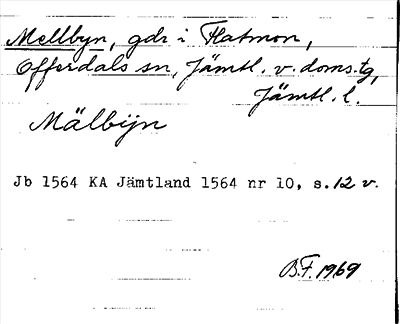 Mellbyn, gdr i Flatmon,
Offerdals sn, Jämtl. v. doms.tg,
Jämtl. l.
Mälbijn
Jb 1564 KA Jämtland 1564 nr 10, s. 12 v.
B.F. 1969